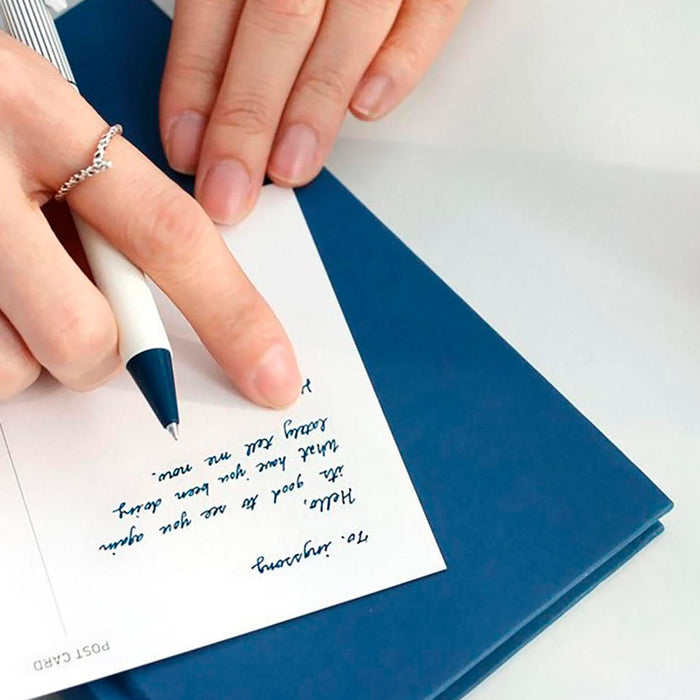 POST CARD
To. ingssong
Hello,
it's good to see you again
What have you been doing
lately tell me now.
H